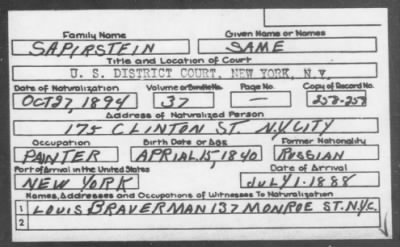 Family Name Given Name or Names
SAPIRSTEIN SAME
Title and Location of Court
U. S. DISTRICT COURT, NEW YORK, N.Y.
Date of Naturalization Volume or Bundle No. Page No. Copy of Record No.
OCT 27, 1894 37 — 258-257
Address of Naturalized Person
175 CLINTON ST N.Y. CITY
Occupation Birth Date or Age Former Nationality
PAINTER APRIAL 15, 1840 RUSSIAN
Port of Arrival in the United States Date of Arrival
NEW YORK JULY 1. 1888
Names, Addresses and Occupations of Witnesses To Naturalization
1 LOUIS BRAVERMAN 137 MONROE ST. N.Y.C.
2